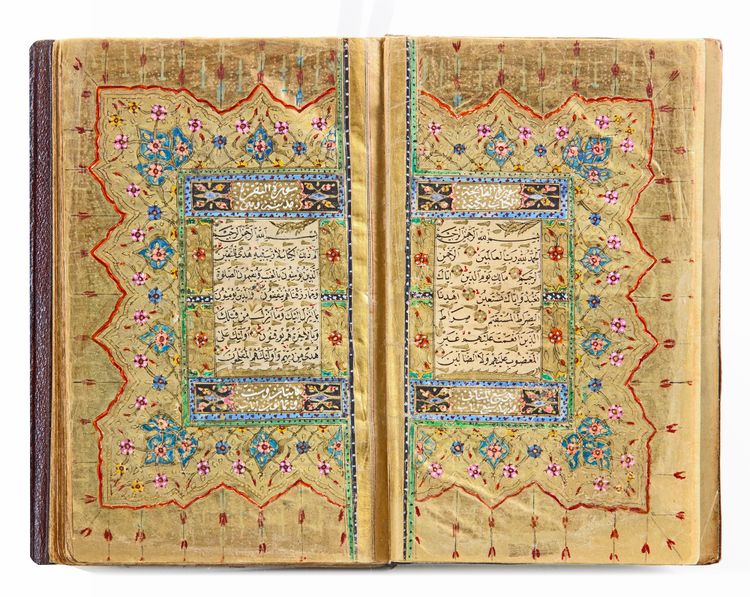 سورة الفاتحة
الكتاب مكية
بسم الله الرحمن الرحيم
الحمد لله رب العالمين الرحمن
الرحيم مالك يوم الدين اياك
نعبد واياك نستعين اهدنا
الصراط المستقيم صراط
الذين انعمت عليهم غير
المغضوب عليهم ولا الضالين
سورة البقرة
مدنية وهي
بسم الله الرحمن الرحيم
الم ذلك الكتاب لا ريب فيه هدى للمتقين
الذين يؤمنون بالغيب ويقيمون الصلوة
ومما رزقناهم ينفقون والذين يؤمنون
بما انزل اليك وما انزل من قبلك
وبالاخرة هم يوقنون اولئك على
هدى من ربهم واولئك هم المفلحون